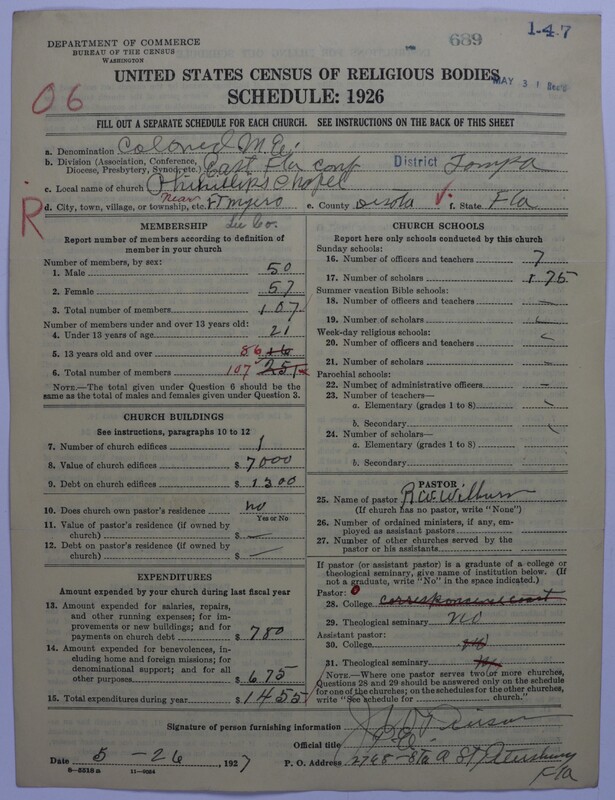 1-4-7
689
DEPARTMENT OF COMMERCE
BUREAU OF THE CENSUS
WASHINGTON
UNITED STATES CENSUS OF RELIGIOUS BODIES
MAY 31
SCHEDULE: 1926
06
FILL OUT A SEPARATE SCHEDULE FOR EACH CHURCH. SEE INSTRUCTIONS ON THE BACK OF THIS SHEET
a. Denomination Colored M. E.
b. Division (Association, Conference, Diocese, Presbytery, Synod, etc.) East Fla conf District Tompa
c. Local name of church Phihillips Chapel
d. City, town, village, or township, etc. near Ft Myers e. County f. State Fla
R
Lee Co.
MEMBERSHIP
Report number of members according to definition of
member in your church
Number of members, by sex:
1. Male 50
2. Female 57
3. Total number of members 107
Number of members under and over 13 years old:
4. Under 13 years of age 21
5. 13 years old and over 86
6. Total number of members 107
NOTE.—The total given under Question 6 should be the
same as the total of males and females given under Question 3.
CHURCH BUILDINGS
See instructions, paragraphs 10 to 12
7. Number of church edifices 1
8. Value of church edifices $ 7000
9. Debt on church edifices $ 1300
10. Does church own pastor's residence no
Yes or No
11. Value of pastor's residence (if owned by
church) $ —
12. Debt on pastor's residence (if owned by
church) $ —
EXPENDITURES
Amount expended by your church during last fiscal year
13. Amount expended for salaries, repairs,
and other running expenses; for im-
provements or new buildings; and for
payments on church debt $ 780
14. Amount expended for benevolences,
including home and foreign missions; for
denominational support; and for all
other purposes $ 675
15. Total expenditures during year $ 1455
CHURCH SCHOOLS
Report here only schools conducted by this church
Sunday schools:
16. Number of officers and teachers 7
17. Number of scholars 75
Summer vacation Bible schools:
18. Number of officers and teachers —
19. Number of scholars
Week-day religious schools:
20. Number of officers and teachers
21. Number of scholars —
Parochial schools:
22. Number of administrative officers —
23. Number of teachers—
a. Elementary (grades 1 to 8)
b. Secondary
24. Number of scholars—
a. Elementary (grades 1 to 8)
b. Secondary
PASTOR
25. Name of pastor Wilburn
(If church has no pastor, write "None")
26. Number of ordained ministers, if any, em-
ployed as assistant pastors
27. Number of other churches served by the
pastor or his assistants
If pastor (or assistant pastor) is a graduate of a college or
theological seminary, give name of institution below. (If
not a graduate, write "No" in the space indicated.)
Pastor: 0
28. College
29. Theological seminary NO
Assistant pastor:
30. College
31. Theological seminary
NOTE.—Where one pastor serves two or more churches,
Questions 28 and 29 should be answered only on the schedule
for one of the churches; on the schedules for the other churches,
write "See schedule for church."
Signature of person furnishing information
Official title P. E.
Date 5-26, 1927 P. O. Address St Petersburg
Fla
8—5518 a 11—9054